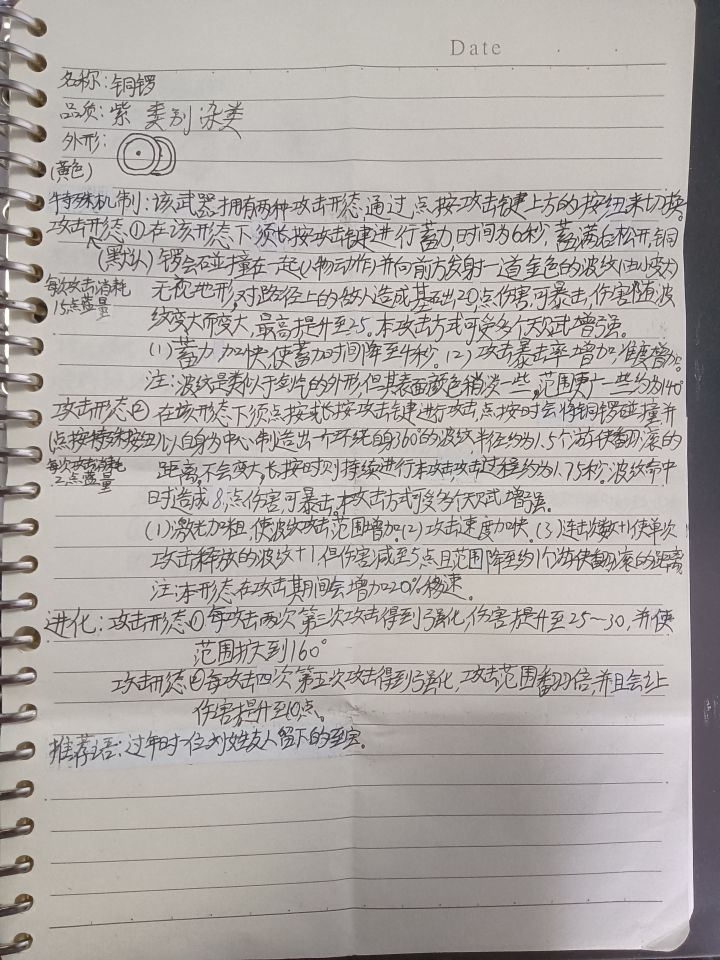 Date
名称:铜锣
品质:紫 类别 杂类
外形:
(黄色)
特殊机制:该武器拥有两种攻击形态,通过点按攻击键上方的按钮来切换。
攻击形态①在该形态下须长按攻击键进行蓄力,时间为6秒,蓄满后松开,铜
(默认)锣会碰撞在一起(人物动作)并向前方发射一道金色的波纹(由小变大)
每次攻击消耗15点蓝量
无视地形,对路径上的敌人造成基础20点伤害,可暴击,伤害随波
纹变大而变大,最高提升至25。本攻击方式可受多个天赋增强。
(1)蓄力加快,使蓄力时间降至4秒。(2)攻击暴击率增加,准度增加。
注:波纹是类似于剑气的外形,但其表面颜色稍淡一些,范围更广一些约为140°
攻击形态②在该形态下须点按或长按攻击键进行攻击,点按时会将铜锣碰撞并
(点按特殊按钮)以自身为中心,制造出一个环绕自身360°的波纹,半径约为1.5个游侠翻滚的
每次攻击消耗2点蓝量
距离,不会变大。长按时则持续进行本攻击,攻击过程约为1.75秒。波纹命中
时造成8点伤害,可暴击。本攻击方式可受多个天赋增强。
(1)激光加粗,使波纹攻击范围增加。(2)攻击速度加快。(3)连击次数+1使单次
攻击释放的波纹+1,但伤害减至5点且范围降至约1个游侠翻滚的距离
注:本形态在攻击期间会增加20%移速。
进化:攻击形态①每攻击两次第三次攻击得到强化,伤害提升至25~30,并使
范围扩大到160°
攻击形态②每攻击四次第五次攻击得到强化,攻击范围翻倍,并且会让
伤害提升至10点。
推荐语:过年时一位刘姓友人留下的至宝。